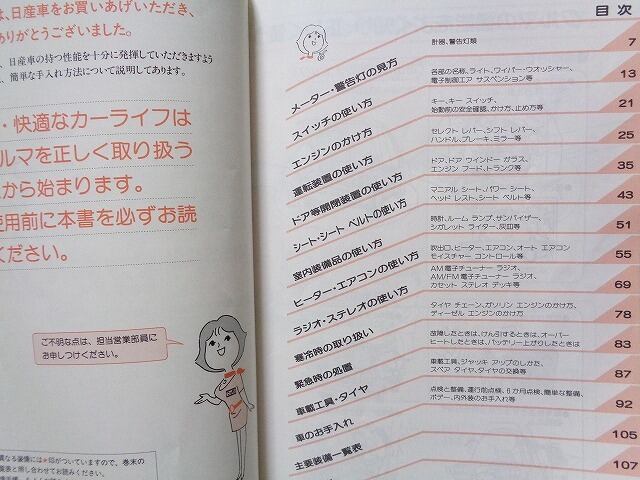 は、日産車をお買いあげいただき、
ありがとうございました。
、日産車の持つ性能を十分に発揮していただきますよう
、簡単な手入れ方法について説明してあります。
・快適なカーライフは
ルマを正しく取り扱う
から始まります。
使用前に本書を必ずお読
ください。
ご不明な点は、担当営業部員に
お申しつけください。
異なる装備には★印がついていますので、巻末の
覧表と照し合わせてお読みください。
目次
メーター・警告灯の見方 計器、警告灯類 7
スイッチの使い方 各部の名称、ライト、ワイパー・ウオッシャー、
電子制御エア サスペンション等 13
エンジンのかけ方 キー、キー スイッチ、
始動前の安全確認、かけ方、止め方等 21
運転装置の使い方 セレクト レバー、シフト レバー、
ハンドル、ブレーキ、ミラー等 25
ドア等開閉装置の使い方 ドア、ドア ウインドー ガラス、
エンジン フード、トランク等 35
シート・シート ベルトの使い方 マニアル シート、パワー シート、
ヘッド レスト、シート ベルト等 43
室内装備品の使い方 時計、ルーム ランプ、サンバイザー、
シガレット ライター、灰皿等 51
ヒーター・エアコンの使い方 吹出口、ヒーター、エアコン、オート エアコン
モイスチャー コントロール等 55
ラジオ・ステレオの使い方 AM電子チューナー ラジオ、
AM/FM電子チューナー ラジオ、
カセット ステレオ デッキ等 69
寒冷時の取り扱い タイヤ チェーン、ガソリン エンジンのかけ方、
ディーゼル エンジンのかけ方 78
緊急時の処置 故障したときは、けん引するときは、オーバー
ヒートしたときは、バッテリー上がりしたときは 83
車載工具・タイヤ 車載工具、ジャッキ アップのしかた、
スペア タイヤ、タイヤの交換等 87
車のお手入れ 点検と整備、運行前点検、6カ月点検、簡単な整備、
ボデー、内外装のお手入れ等 92
主要装備一覧表 105
107